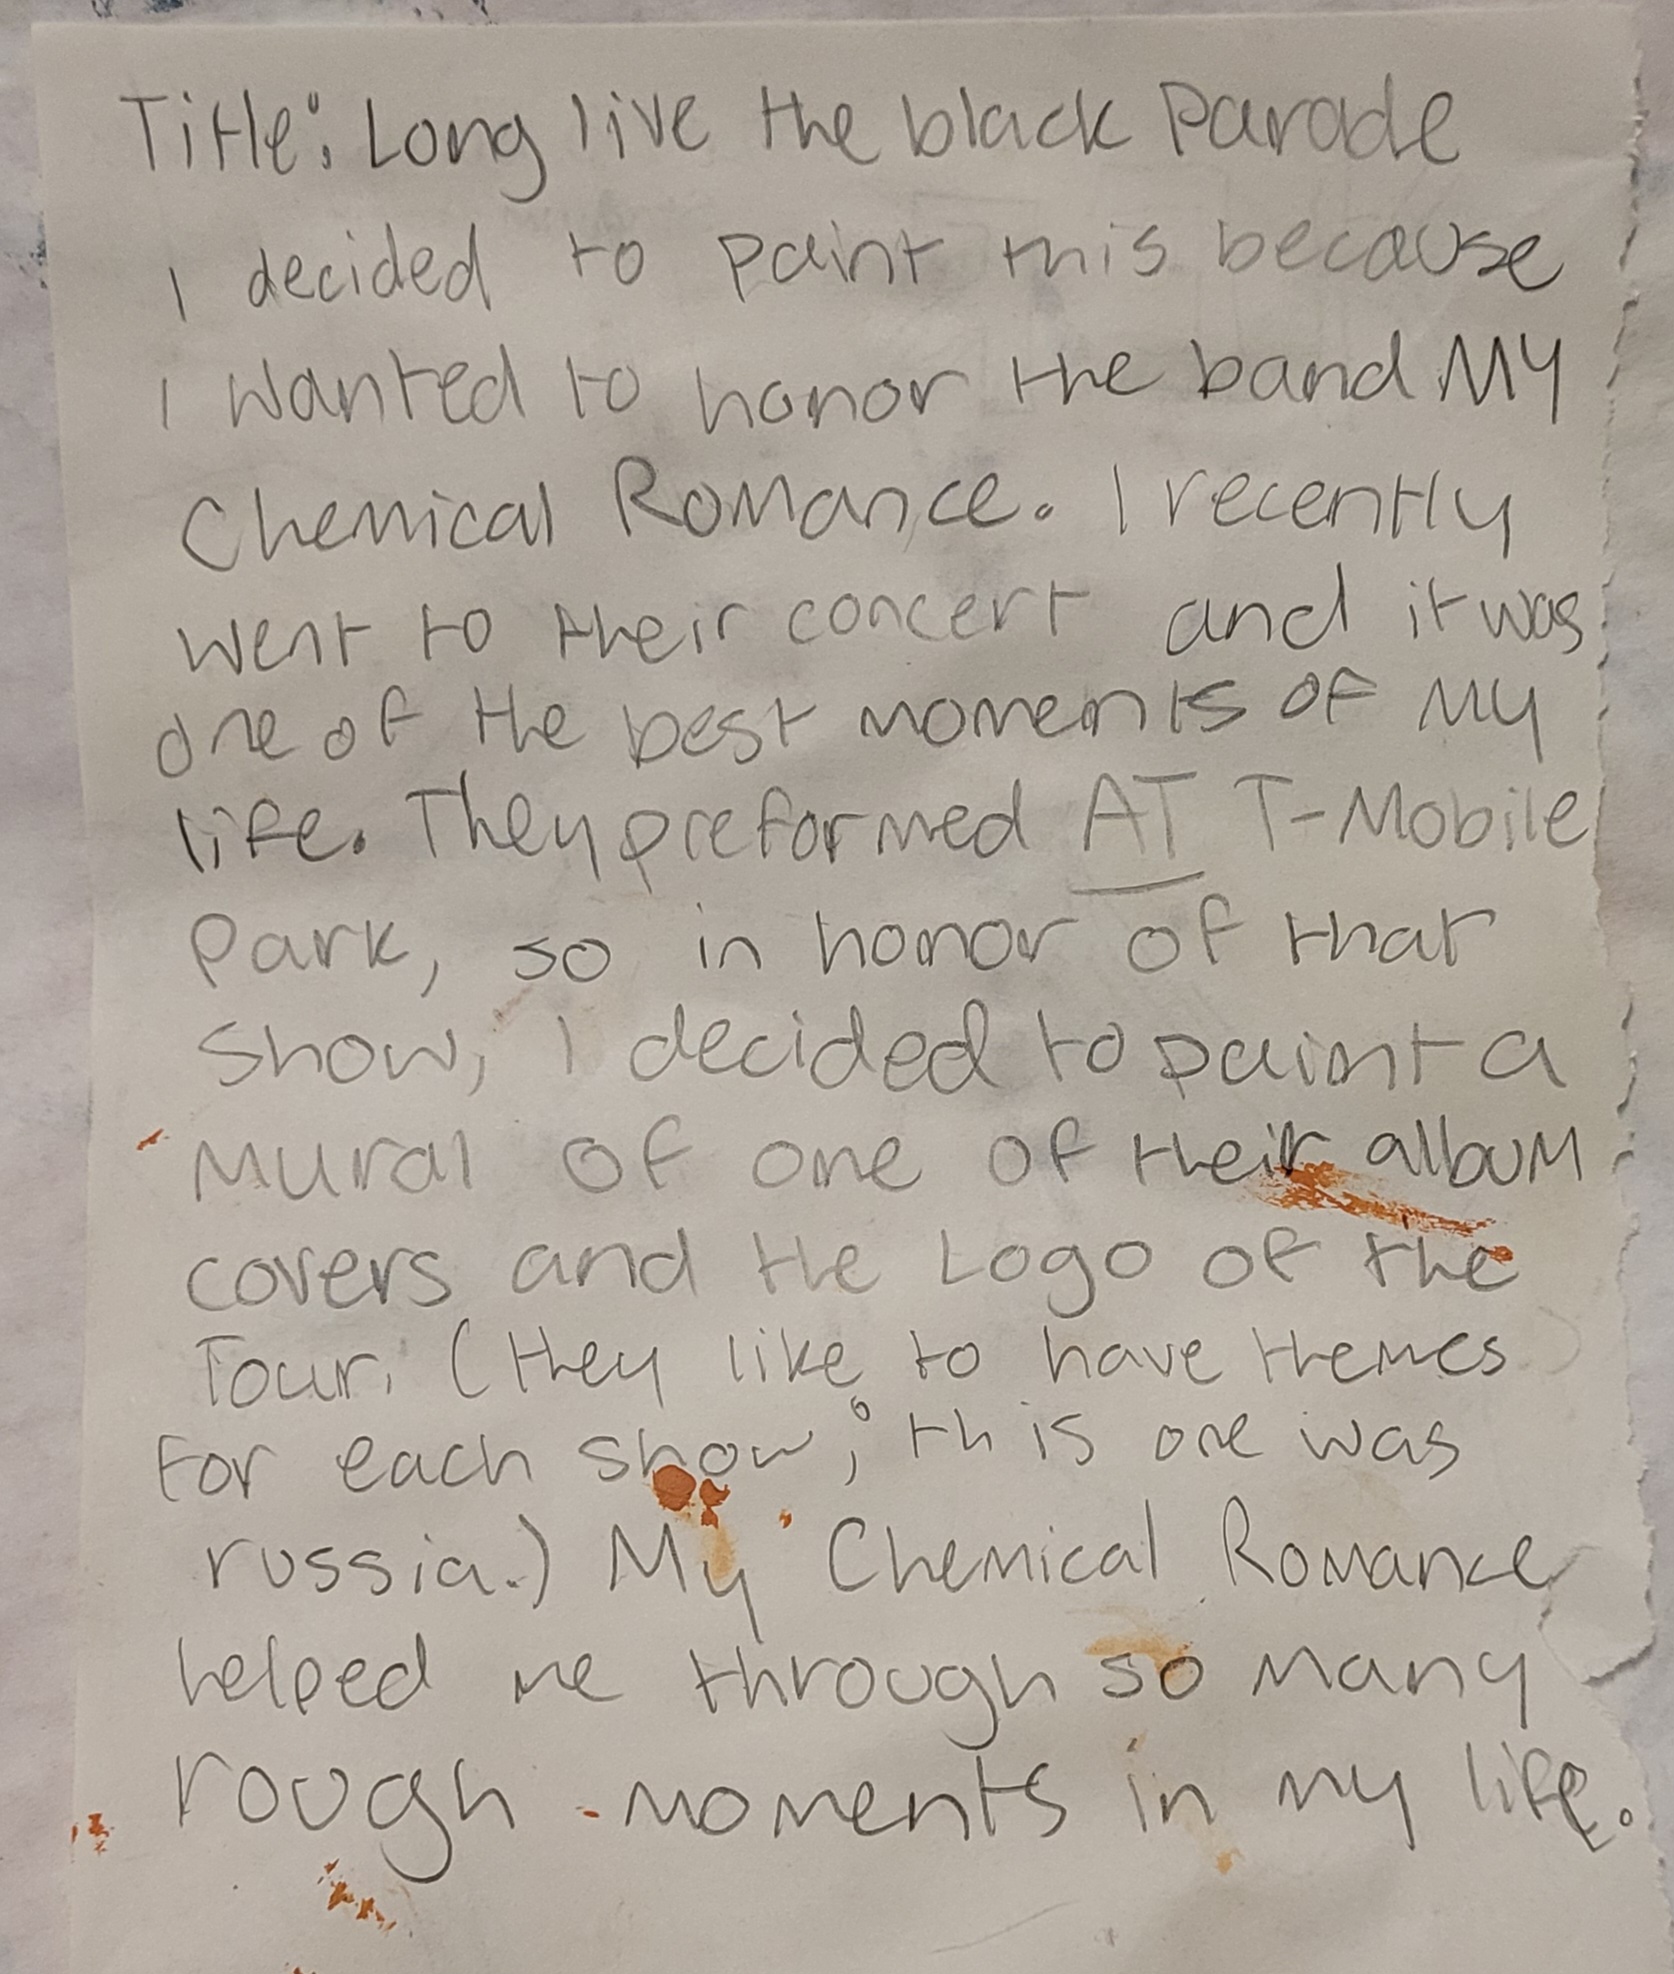 Title: Long live the black Parade
I decided to paint this because
I wanted to honor the band MY
Chemical Romance. I recently
went to their concert and it was
one of the best moments of My
life. They preformed AT T-Mobile
Park, so in honor of that
show, I decided to paint a
Mural of one of their album
covers and the Logo of the
Tour. (they like to have themes
for each show; this one was
russia.) My Chemical Romance
helped me through so many
rough moments in my life.